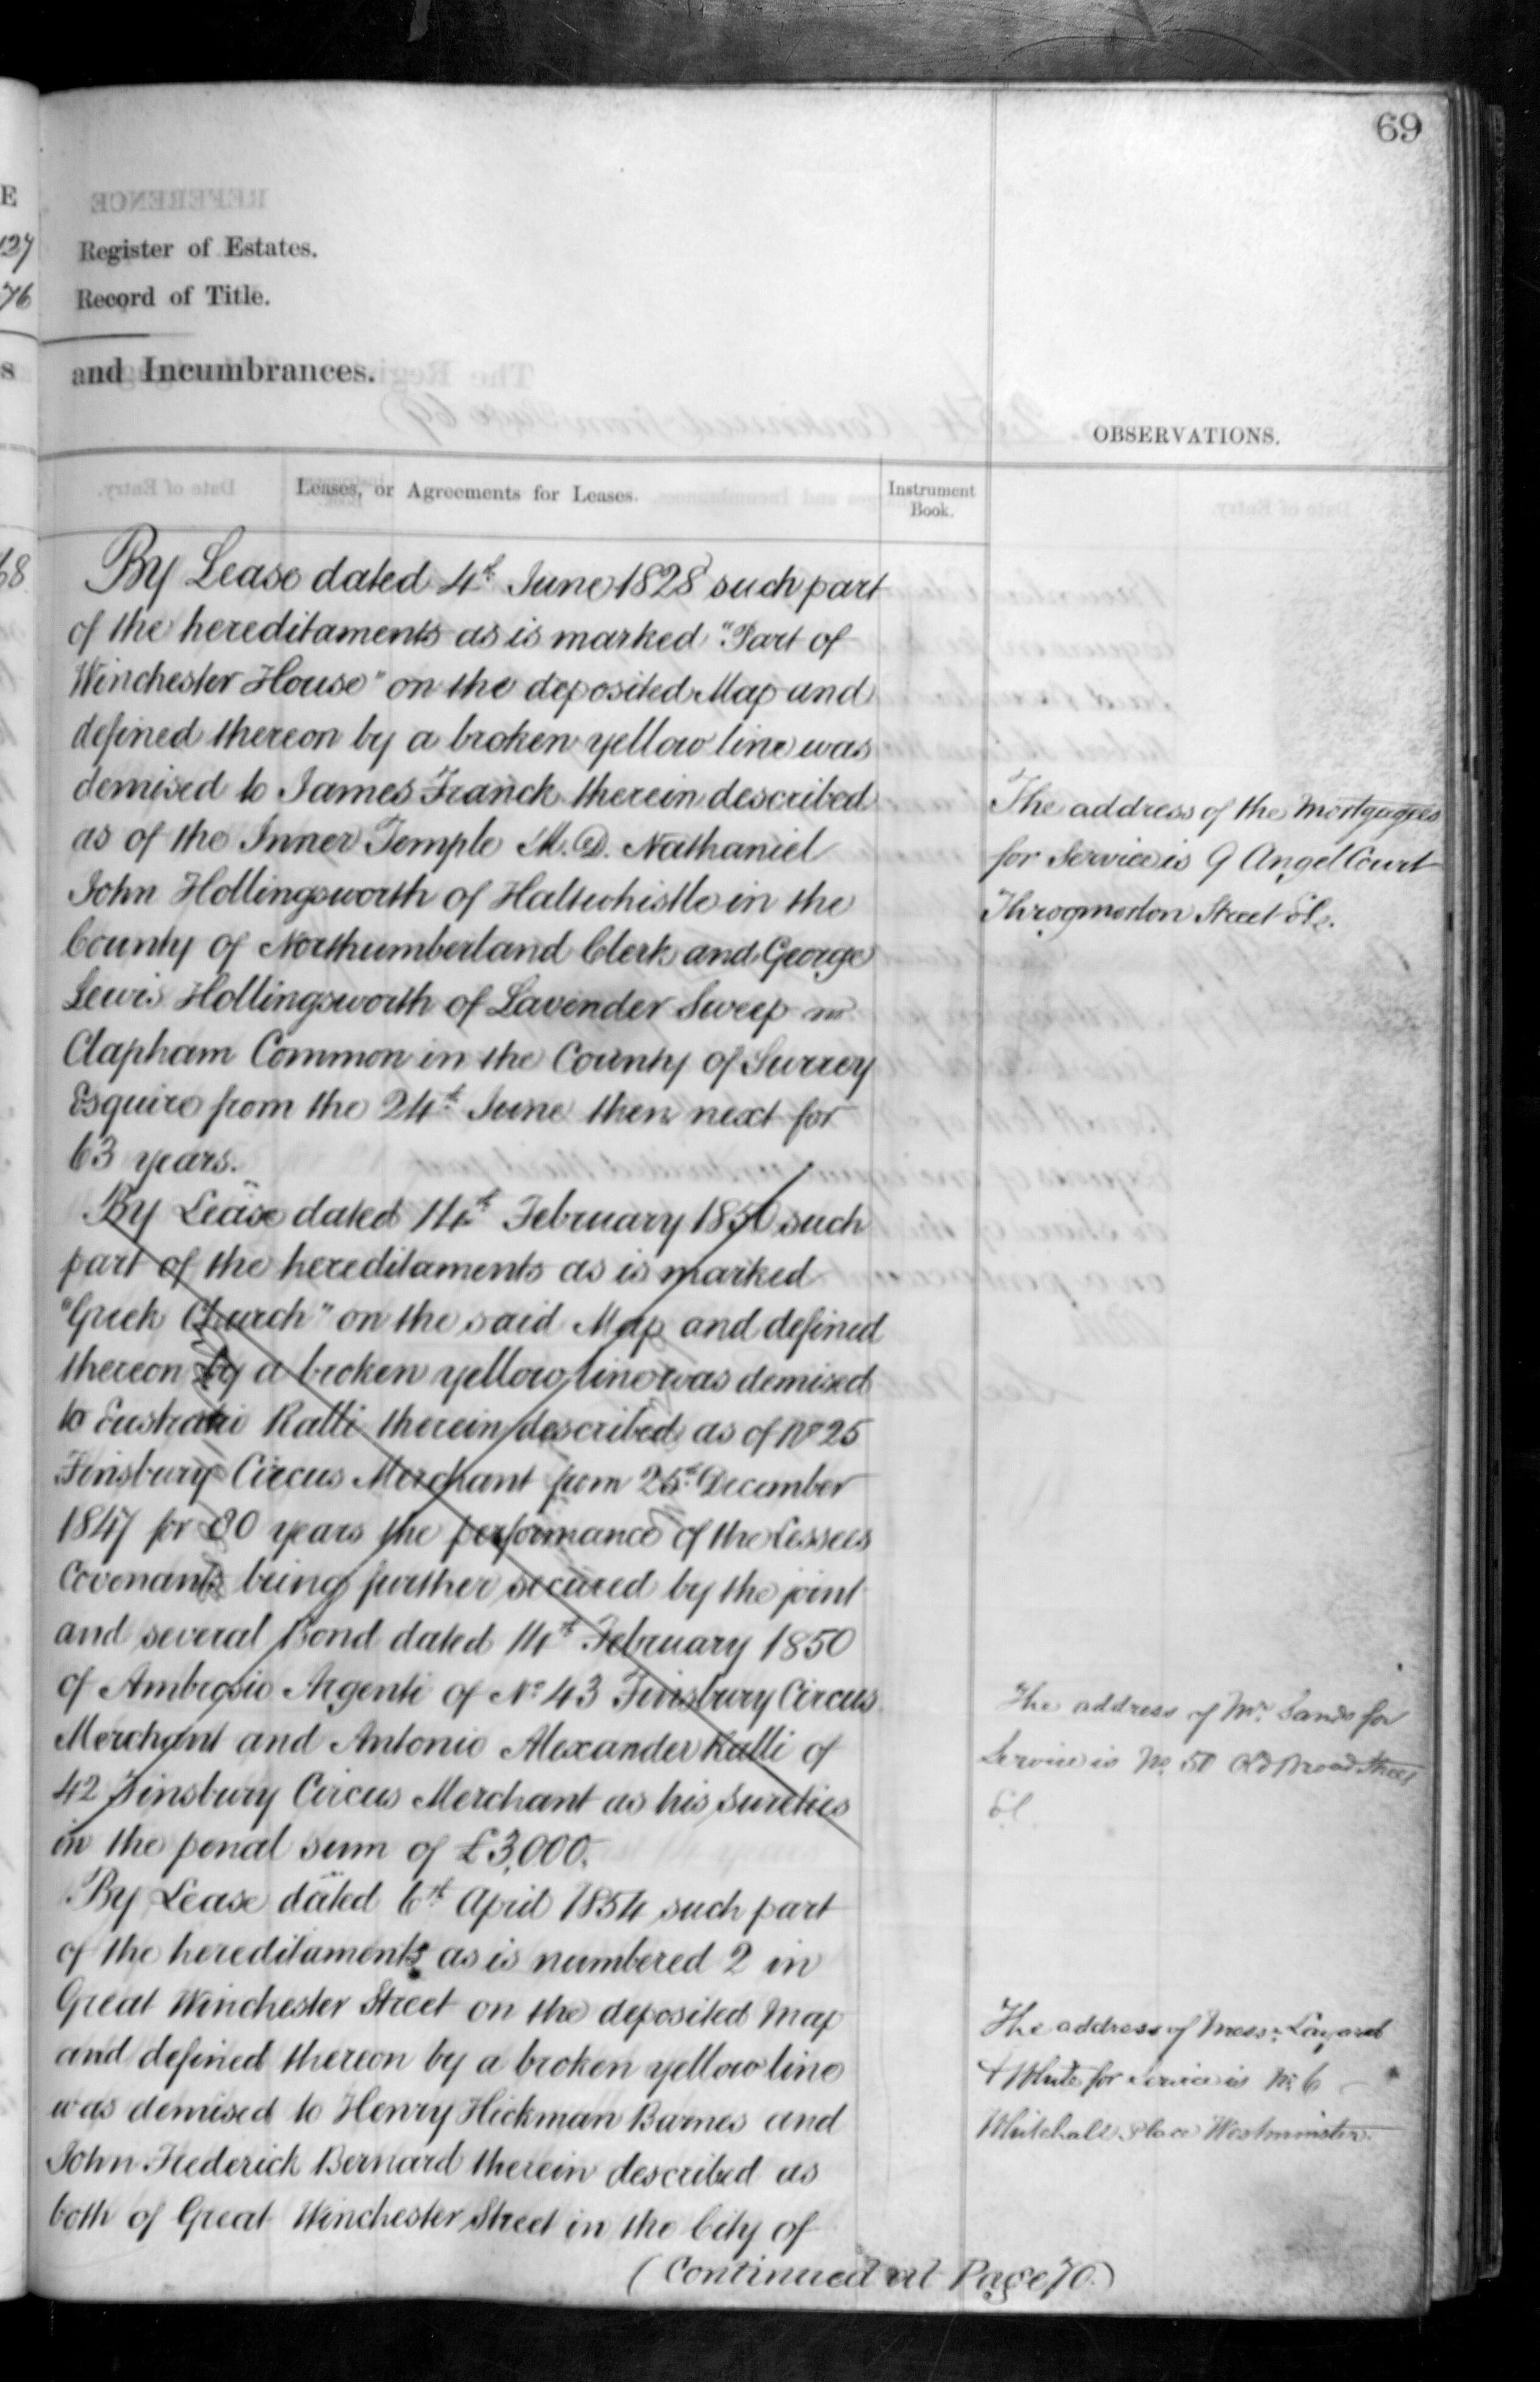 69
Register of Estates.
Record of Title.
and Incumbrances.
OBSERVATIONS.
Leases, or Agreements for Leases.
Instrument
Book.
By Lease dated 4th June 1828 such part
of the hereditaments as is marked "Part of
Winchester House" on the deposited Map and
defined thereon by a broken yellow line was
demised to James Franck therein described
as of the Inner Temple M.D. Nathaniel
John Hollingsworth of Haltwhistle in the
County of Northumberland Clerk and George
Lewis Hollingsworth of Lavender Sweep nr
Clapham Common in the County of Surrey
Esquire from the 24th June then next for
63 years.
By Lease dated 14th February 1850 such
part of the hereditaments as is marked
"Greek Church" on the said Map and defined
thereon by a broken yellow line was demised
to Eustratii Ralli therein described as of No 25
Finsbury Circus Merchant from 25th December
1847 for 80 years the performance of the Lessees
Covenants being further secured by the joint
and several Bond dated 14th February 1850
of Ambrosio Argenti of No 43 Finsbury Circus
Merchant and Antonio Alexander Ralli of
42 Finsbury Circus Merchant as his Sureties
in the penal sum of £3,000.
By Lease dated 6th April 1854 such part
of the hereditaments as is numbered 2 in
Great Winchester Street on the deposited Map
and defined thereon by a broken yellow line
was demised to Henry Hickman Barnes and
John Frederick Bernard therein described as
both of Great Winchester Street in the City of
(Continued at Page 70.)
The address of the Mortgagees
for Service is 9 Angel Court
Throgmorton Street E.C.
The address of Mr. Sands for
Service is No. 50 Old Broad Street
E.C.
The address of Messrs Layard
& White for Service is No 6
Whitehall Place Westminster